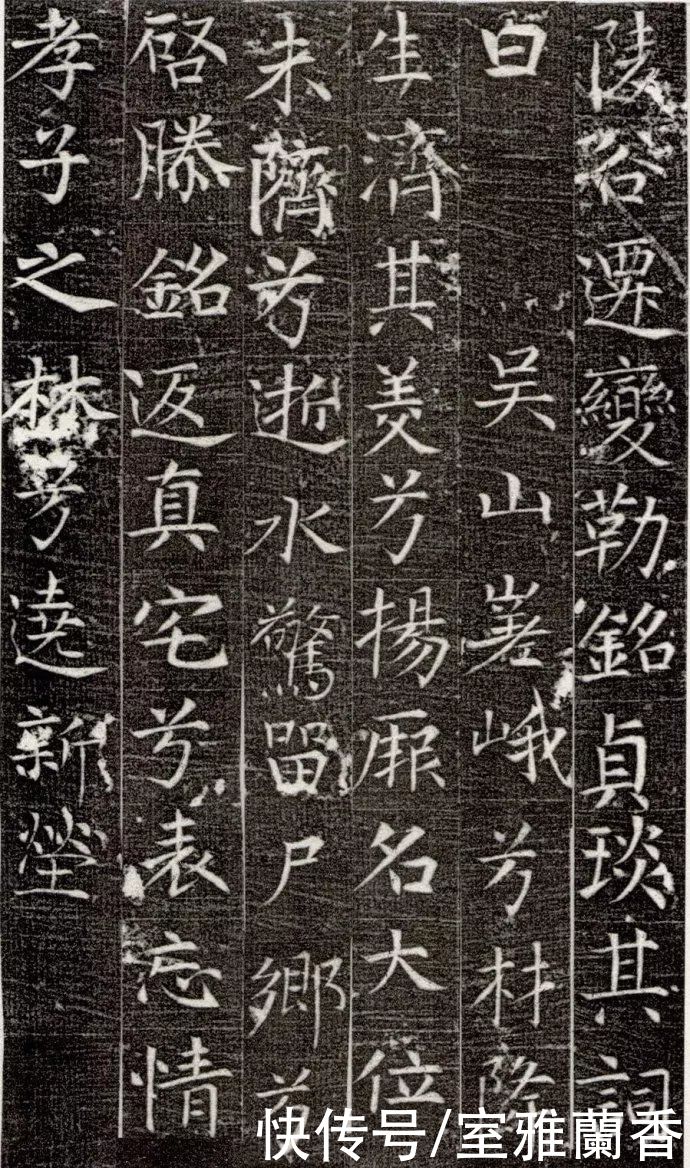 陵谷遷變勒銘貞琰其詞
曰 吴山嵳峨兮材隆
生濟其美兮揚厥名大位
未隮兮逝水驚留尸鄉首
啓滕銘返真宅兮表忘情
孝子之林兮遶新塋
快传号/室雅蘭香